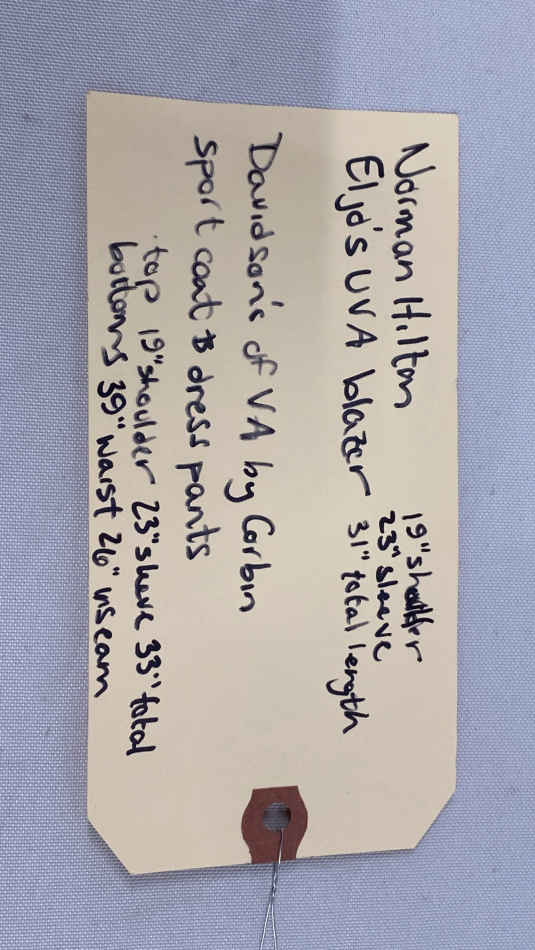 Norman Hilton
19" shoulder
Eljo's UVA blazer
23" sleeve
31" total length
Davidson's of VA by Corbin
sport coat & dress pants
top 19" shoulder 23" sleeve 33" total
bottoms 39" waist 26" inseam